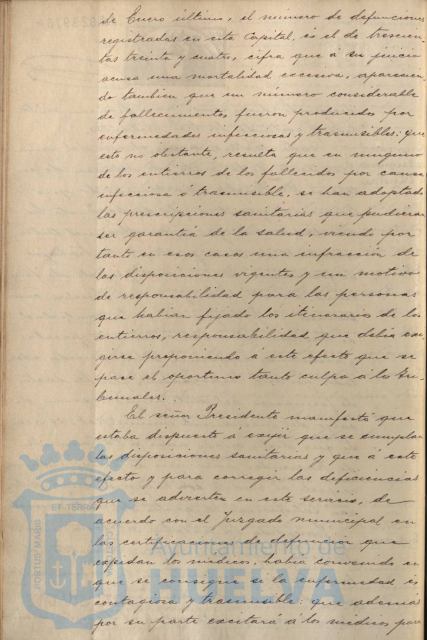 de Enero último, el número de defunciones
registradas en esta Capital, es el de trescien
tas treinta y cuatro, cifra que á su juicio
acusa una mortalidad excesiva, aparecien
do tambien que un número considerable
de fallecimientos fueron producidos por
enfermedades infecciosas y trasmisibles: que
esto no obstante, resulta que en ninguno
de los entierros de los fallecidos por causa
infecciosa ó trasmisible, se han adoptado
las prescripciones sanitarias que pudieran
ser garantia de la salud, siendo por
tanto en esos casos una infracción de
las disposiciones vigentes y un motivo
de responsabilidad para las personas
que habian fijado los itinerarios de los
entierros, responsabilidad que debia exi
girse proponiendo á este efecto que se
pase el oportuno tanto culpa á los tri
bunales.
El señor Presidente manifestó que
estaba dispuesto á exijir que se cumplan
las disposiciones sanitarias y que á este
efecto y para corregir las deficiencias
que se advierten en este servicio, de
acuerdo con el Juzgado municipal en
las certificaciones de defuncion que
expidan los médicos, habia convenido en
que se consigne si la enfermedad es
contagiosa y trasmisible: que además
por su parte excitará á los médicos para
Ayuntamiento de
HUELVA
PORTUS MARIS
ET TERRA